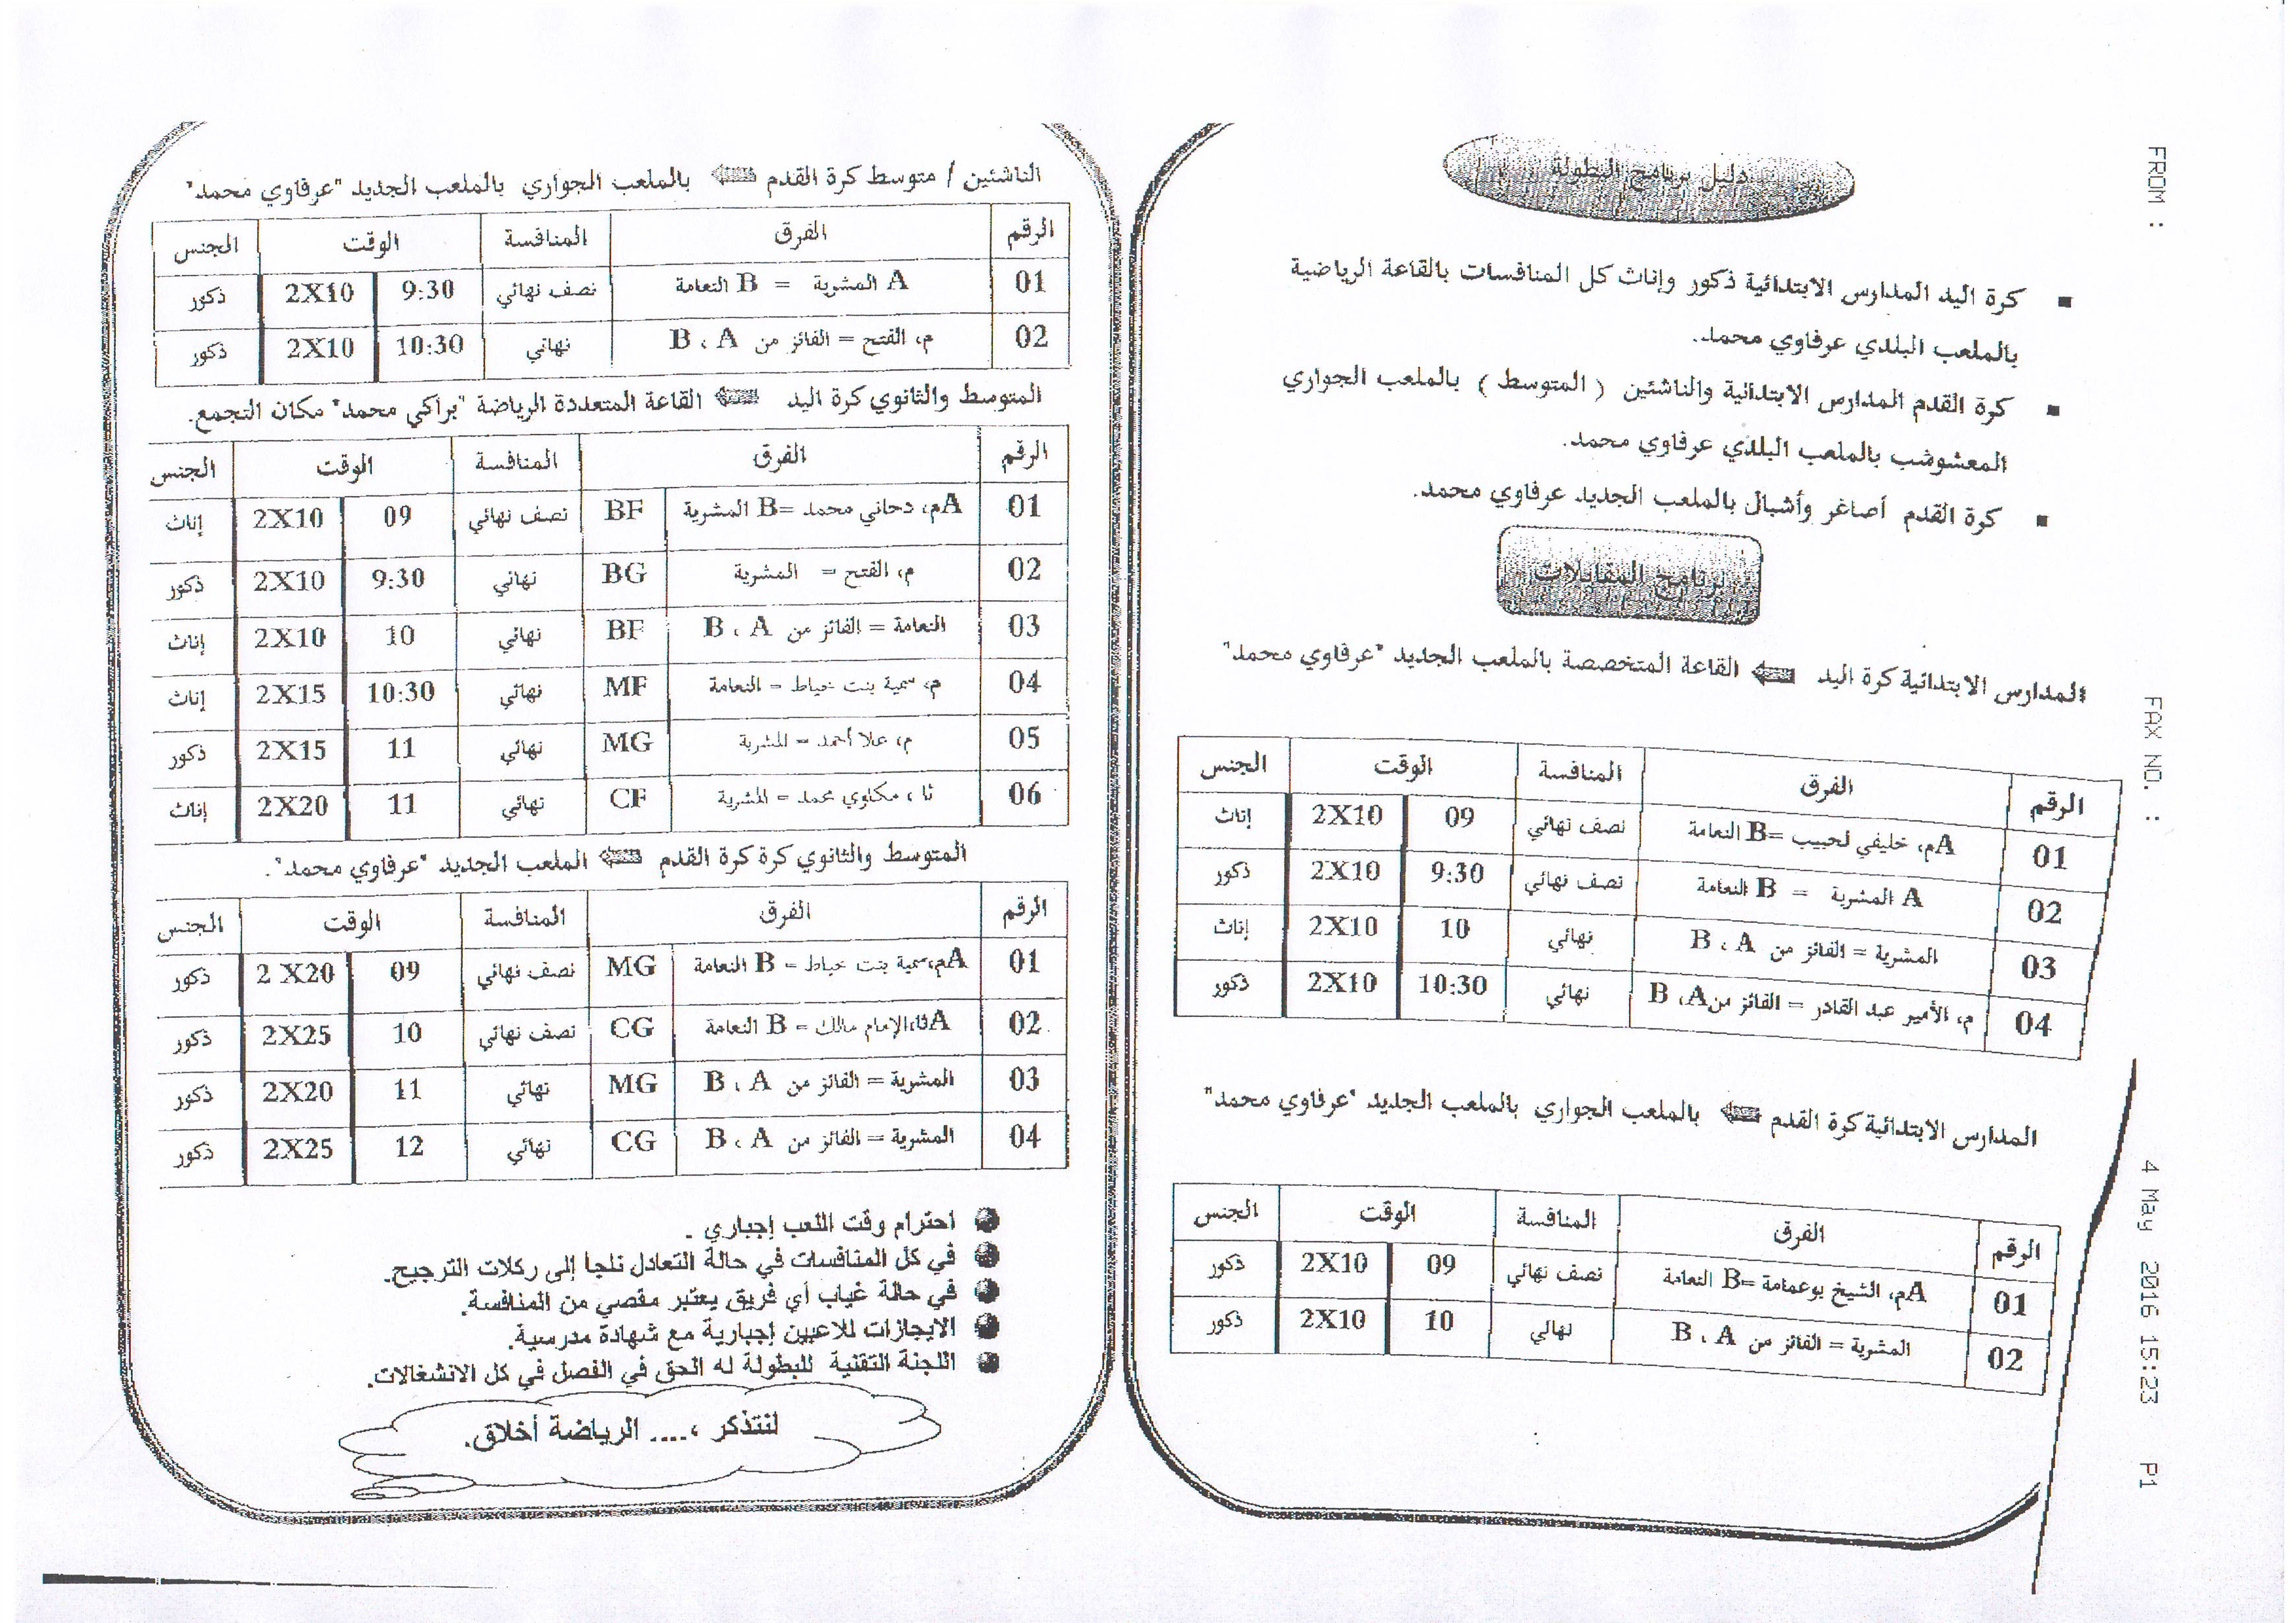 دليل برنامج البطولة
▪ كرة اليد المدارس الابتدائية ذكور وإناث كل المنافسات بالقاعة الرياضية
بالملعب البلدي عرفاوي محمد.
▪ كرة القدم المدارس الابتدائية والناشئين ( المتوسط ) بالملعب الجواري
المعشوشب بالملعب البلدي عرفاوي محمد.
▪ كرة القدم أصاغر وأشبال بالملعب الجديد عرفاوي محمد.
برنامج المقابلات
المدارس الابتدائية كرة اليد القاعة المتخصصة بالملعب الجديد "عرفاوي محمد"
الرقم الفرق المنافسة الوقت الجنس
01 Aم، خليفي لحبيب =B النعامة نصف نهائي 09 2X10 إناث
02 A المشرية = B النعامة نصف نهائي 9:30 2X10 ذكور
03 المشرية = الفائز من B ، A نهائي 10 2X10 إناث
04 م، الأمير عبد القادر = الفائز من B ،A نهائي 10:30 2X10 ذكور
المدارس الابتدائية كرة القدم بالملعب الجواري بالملعب الجديد "عرفاوي محمد"
الرقم الفرق المنافسة الوقت الجنس
01 Aم، الشيخ بوعمامة =B النعامة نصف نهائي 09 2X10 ذكور
02 المشرية = الفائز من B ، A نهائي 10 2X10 ذكور
الناشئين / متوسط كرة القدم بالملعب الجواري بالملعب الجديد "عرفاوي محمد"
الرقم الفرق المنافسة الوقت الجنس
01 A المشرية = B النعامة نصف نهائي 9:30 2X10 ذكور
02 م، الفتح = الفائز من B ، A نهائي 10:30 2X10 ذكور
المتوسط والثانوي كرة اليد القاعة المتعددة الرياضة "براكي محمد" مكان التجمع.
الرقم الفرق المنافسة الوقت الجنس
01 Aم، دحاني محمد =B المشرية BF نصف نهائي 09 2X10 إناث
02 م، الفتح = المشرية BG نهائي 9:30 2X10 ذكور
03 النعامة = الفائز من B ، A BF نهائي 10 2X10 إناث
04 م، سمية بنت خياط = النعامة MF نهائي 10:30 2X15 إناث
05 م، علا أحمد = المشرية MG نهائي 11 2X15 ذكور
06 ثا ، مكاوي محمد = المشرية CF نهائي 11 2X20 إناث
المتوسط والثانوي كرة كرة القدم الملعب الجديد "عرفاوي محمد".
الرقم الفرق المنافسة الوقت الجنس
01 Aم،سمية بنت خياط = B النعامة MG نصف نهائي 09 2 X20 ذكور
02 Aثا،الإمام مالك = B النعامة CG نصف نهائي 10 2X25 ذكور
03 المشرية = الفائز من B ، A MG نهائي 11 2X20 ذكور
04 المشرية = الفائز من B ، A CG نهائي 12 2X25 ذكور
احترام وقت اللعب إجباري .
في كل المنافسات في حالة التعادل نلجا إلى ركلات الترجيح.
في حالة غياب أي فريق يعتبر مقصي من المنافسة.
الايجازات للاعبين إجبارية مع شهادة مدرسية.
اللجنة التقنية للبطولة له الحق في الفصل في كل الانشغالات.
لنتذكر ،.... الرياضة أخلاق.
FROM : FAX NO. : 4 May 2016 15:23 P1